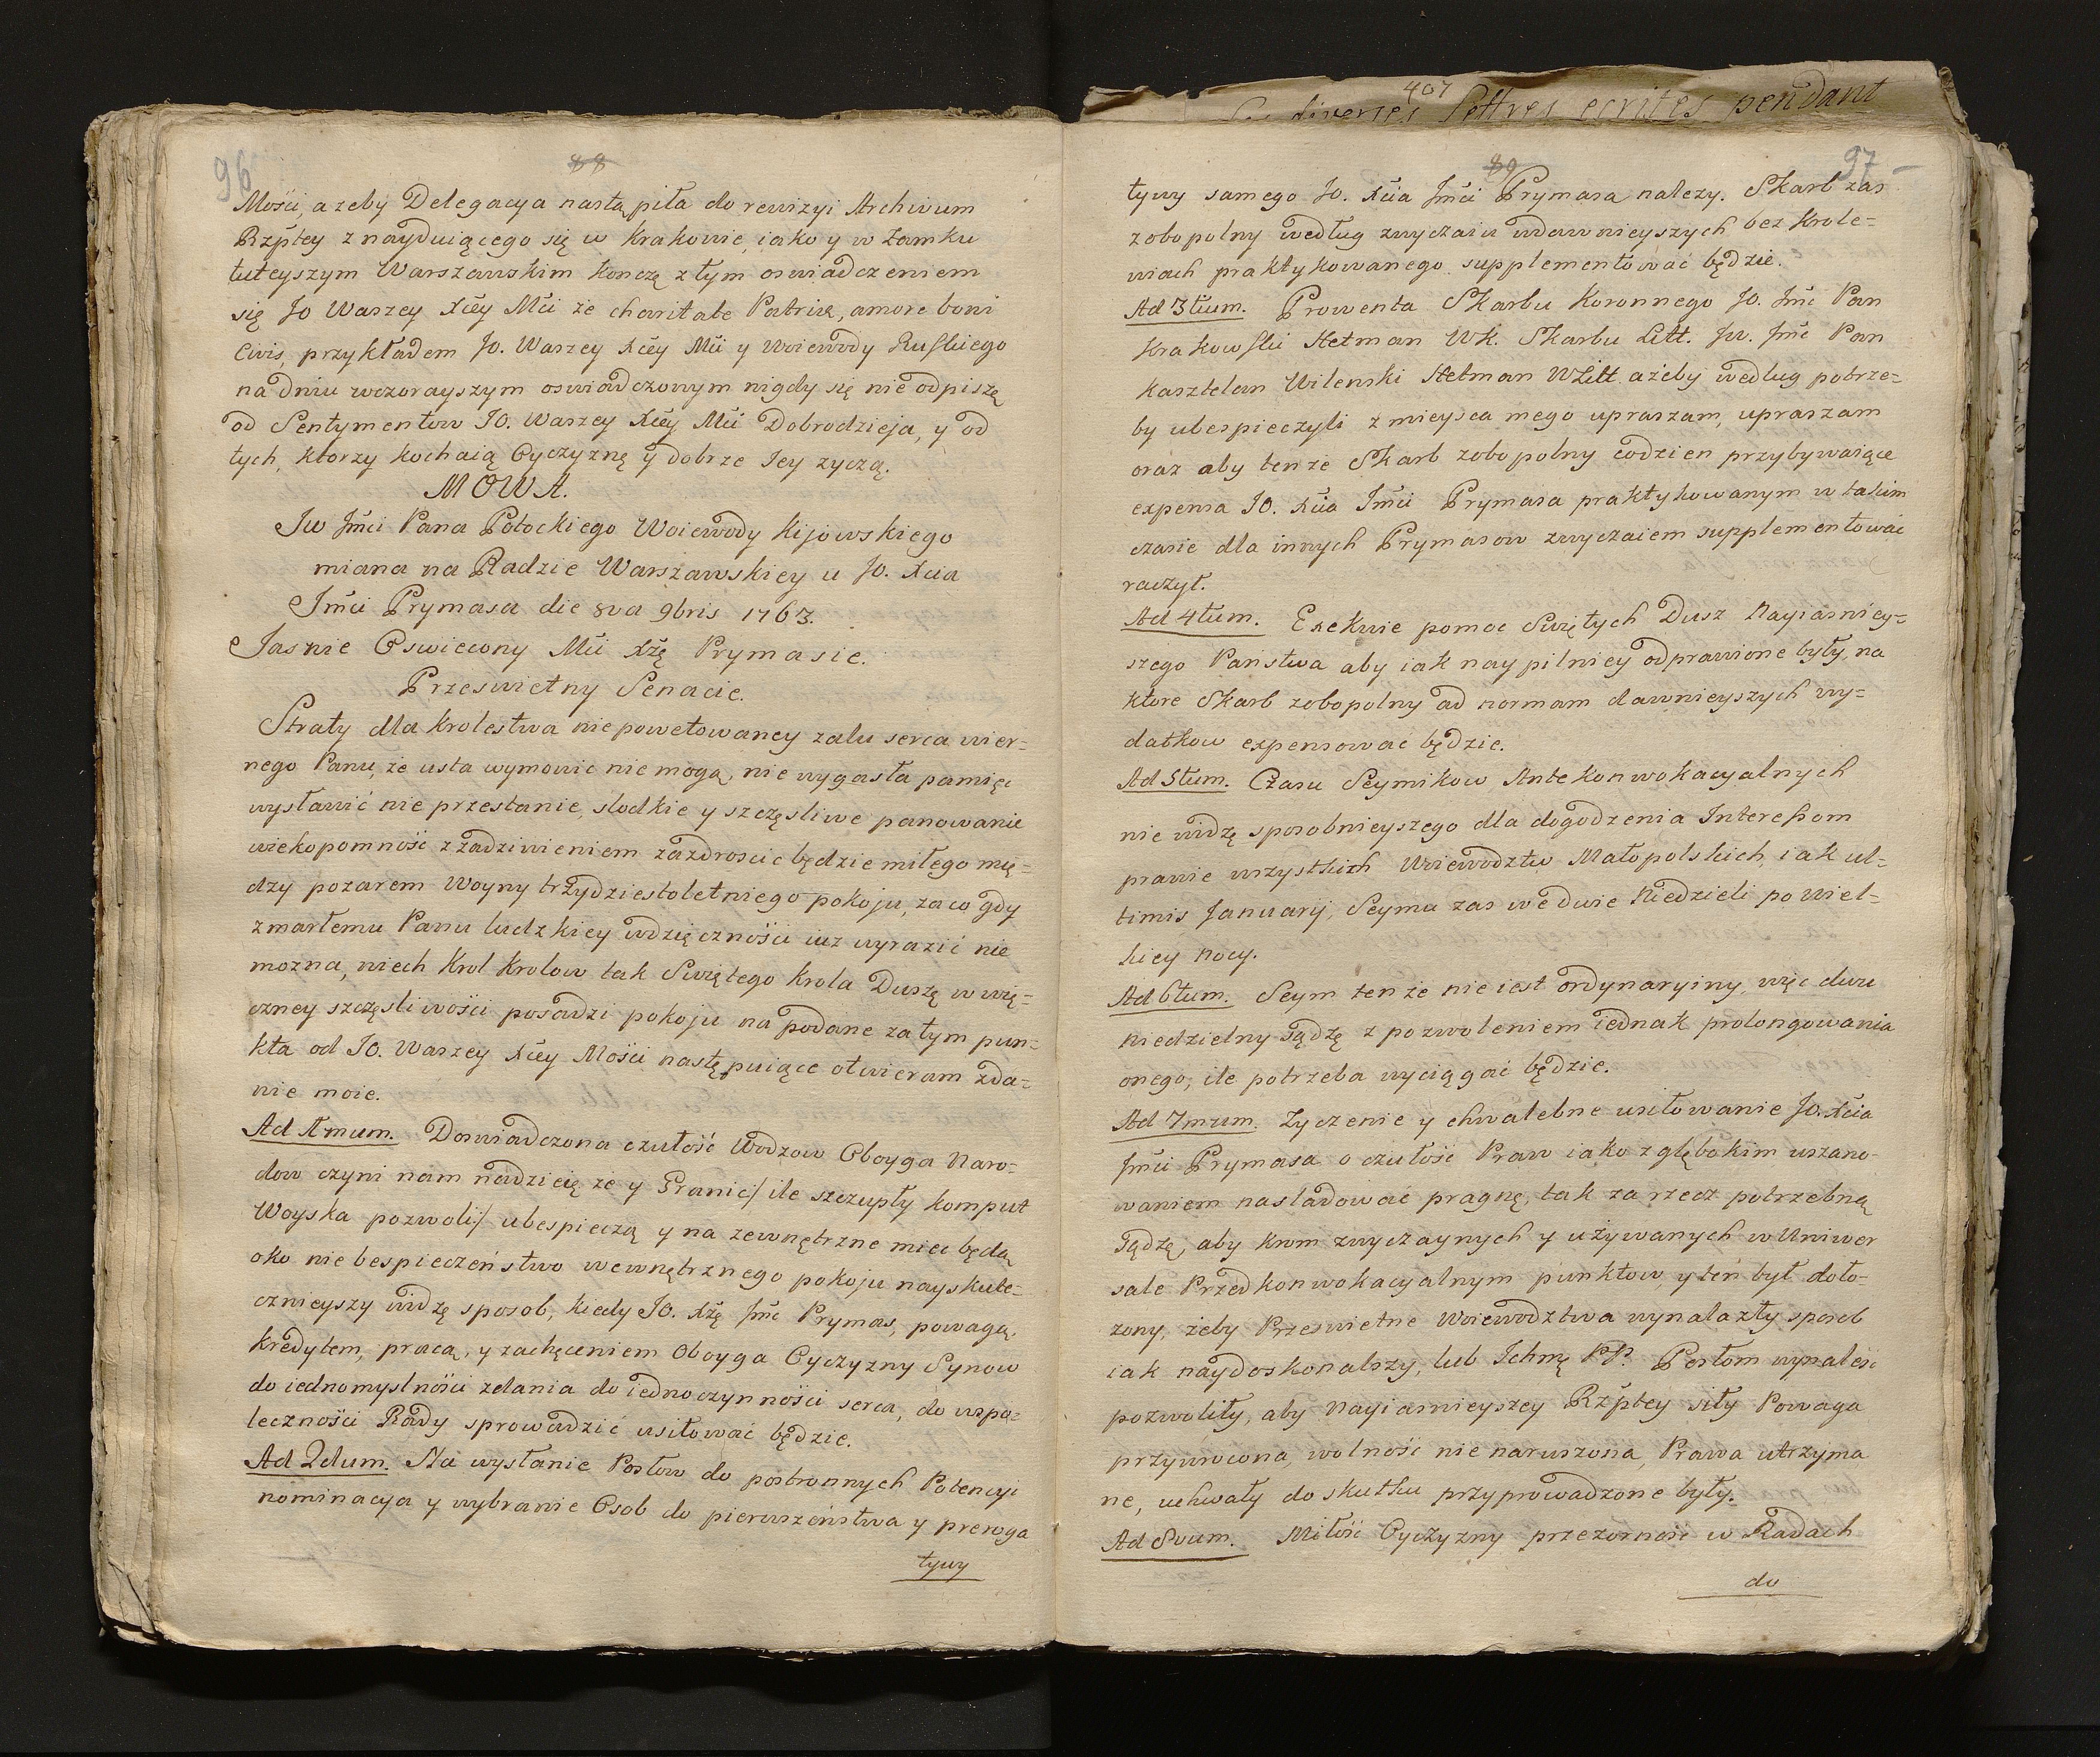 96
88
Mości, azeby Delegacya nastąpiła do rewizyi Archivum
Rzptey znayduiącego się w Krakowie, iako y w Zamku
tuteyszym Warszawskim Konczę z tym oswiadczeniem
się Jo Waszey Xcey Mci że charitate Patriæ, amore boni
Civis, przykładem Jo. Waszey Xcey Mci y Woiewody Ruskiego
na dniu wczorayszym oswiadczonym nigdy się nie odpiszę
od Sentymentow JO. Waszey Xcey Mci Dobrodzieja, y od
tych, ktorzy kochaią Oyczyznę y dobrze Jey zyczą.
MOWA.
Jw Jmci Pana Potockiego Woiewody Kijowskiego
miana na Radzie Warszawskiey u Jo. Xcia
Jmci Prymasa die 8va 9bris 1763.
Jasnie Oswiecony Mci Xżę Prymasie.
Przeswietny Senacie.
Straty dla Krolestwa niepowetowaney zalu serca wier=
nego Panu, że usta wymowic nie mogą, nie wygasła pamięć
wysławić nie przestanie, slodkie y szczęsliwe panowanie
wiekopomność z zadziwieniem zazdroscic będzie miłego mię=
dzy pozarem Woyny trzydziestoletniego pokoju, zaco gdy
zmarłemu Panu ludzkiey wdzięczności iuz wyrazić nie
mozna, niech Krol Krolow tak Swiętego Krola Duszę w wie=
czney szczęsliwości posadzi pokoju na podane zatym pun=
kta od JO. Waszey Xcey Mości następuiące otwieram zda=
nie moie.
Ad 1mum. Doswiadczona czułość Wodzow Oboyga Naro=
dow czyni nam nadzieię że y Granic/ ile szczupły komput
Woyska pozwoli:/ ubespieczą y na zewnętrzne miec będą
oko niebespieczeństwo wewnętrznego pokoju nayskute=
cznieyszy widzę sposob, kiedy JO. Xżę Jmc Prymas, powagą,
kredytem, pracą, y zachęceniem Oboyga Oyczyzny Synow
do iednomyslności zdania do iednoczynności serca, do wspo=
leczności Rady sprowadzić usiłować będzie.
Ad 2dum. Na wysłanie Posłow do postronnych Potencyi
nominacya y wybranie Osob do pierwszeństwa y preroga
tywy
407
diverses lettres ecrites pendant
89
97
tywy samego Jo. Xcia Jmci Prymasa nalezy. Skarb zas
zobopolny według zwyczaiu wdawnieyszych bezKrole=
wiach praktykowanego supplementować będzie.
Ad 3tium. Prowenta Skarbu Koronnego Jo. Jmc Pan
Krakowski Hetman WK. Skarbu Litt. Jw. Jmc Pan
Kasztelan Wilenski Hetman WLitt ażeby według potrze=
by ubespieczyli z mieysca mego upraszam, upraszam
oraz aby tenże Skarb zobopolny codzien przybywaiące
expensa JO. Xcia Jmci Prymasa praktykowanym w takim
czasie dla innych Prymasow zwyczaiem supplementować
raczył.
Ad 4tum. Exekwie pomoc Swiętych Dusz Nayiasniey=
szego Państwa aby iak naypilniey odprawione były, na
ktore Skarb zobopolny ad normam dawnieyszych wy=
datkow expensować będzie.
Ad 5tum. Czasu Seymikow Antekonwokacyalnych
nie widzę sposobnieyszego dla dogodzenia Interessom
prawie wszystkich Woiewodztw Małopolskich, iak ul=
timis January, Seymu zas we dwie Niedzieli po wiel=
kiey nocy.
Ad 6tum. Seym tenże nie iest ordynaryiny, więc dwu
niedzielny sądzę z pozwoleniem iednak prolongowania
onego, ile potrzeba wyciągać będzie.
Ad 7mum. Zyczenie y chwalebne usiłowanie Jo. Xcia
Jmci Prymasa o czułość Praw iako z głębokim uszano=
waniem nasladować pragnę, tak za rzecz potrzebną
sądzę, aby krom zwyczaynych y używanych w Uniwer
sale Przedkonwokacyalnym punktow, y ten był doło=
zony, żeby Przeswietne Woiewodztwa wynalazły sposob
iak naydoskonalszy, lub Ichmę PP. Posłom wynaleść
pozwoliły, aby Nayiasnieyszey Rzptey siły Powaga
przywrocona, wolność nie naruszona, Prawa utrzyma
ne, uchwały do skutku przyprowadzone były.
Ad 8vum. Miłość Oyczyzny przezorność w Radach
do